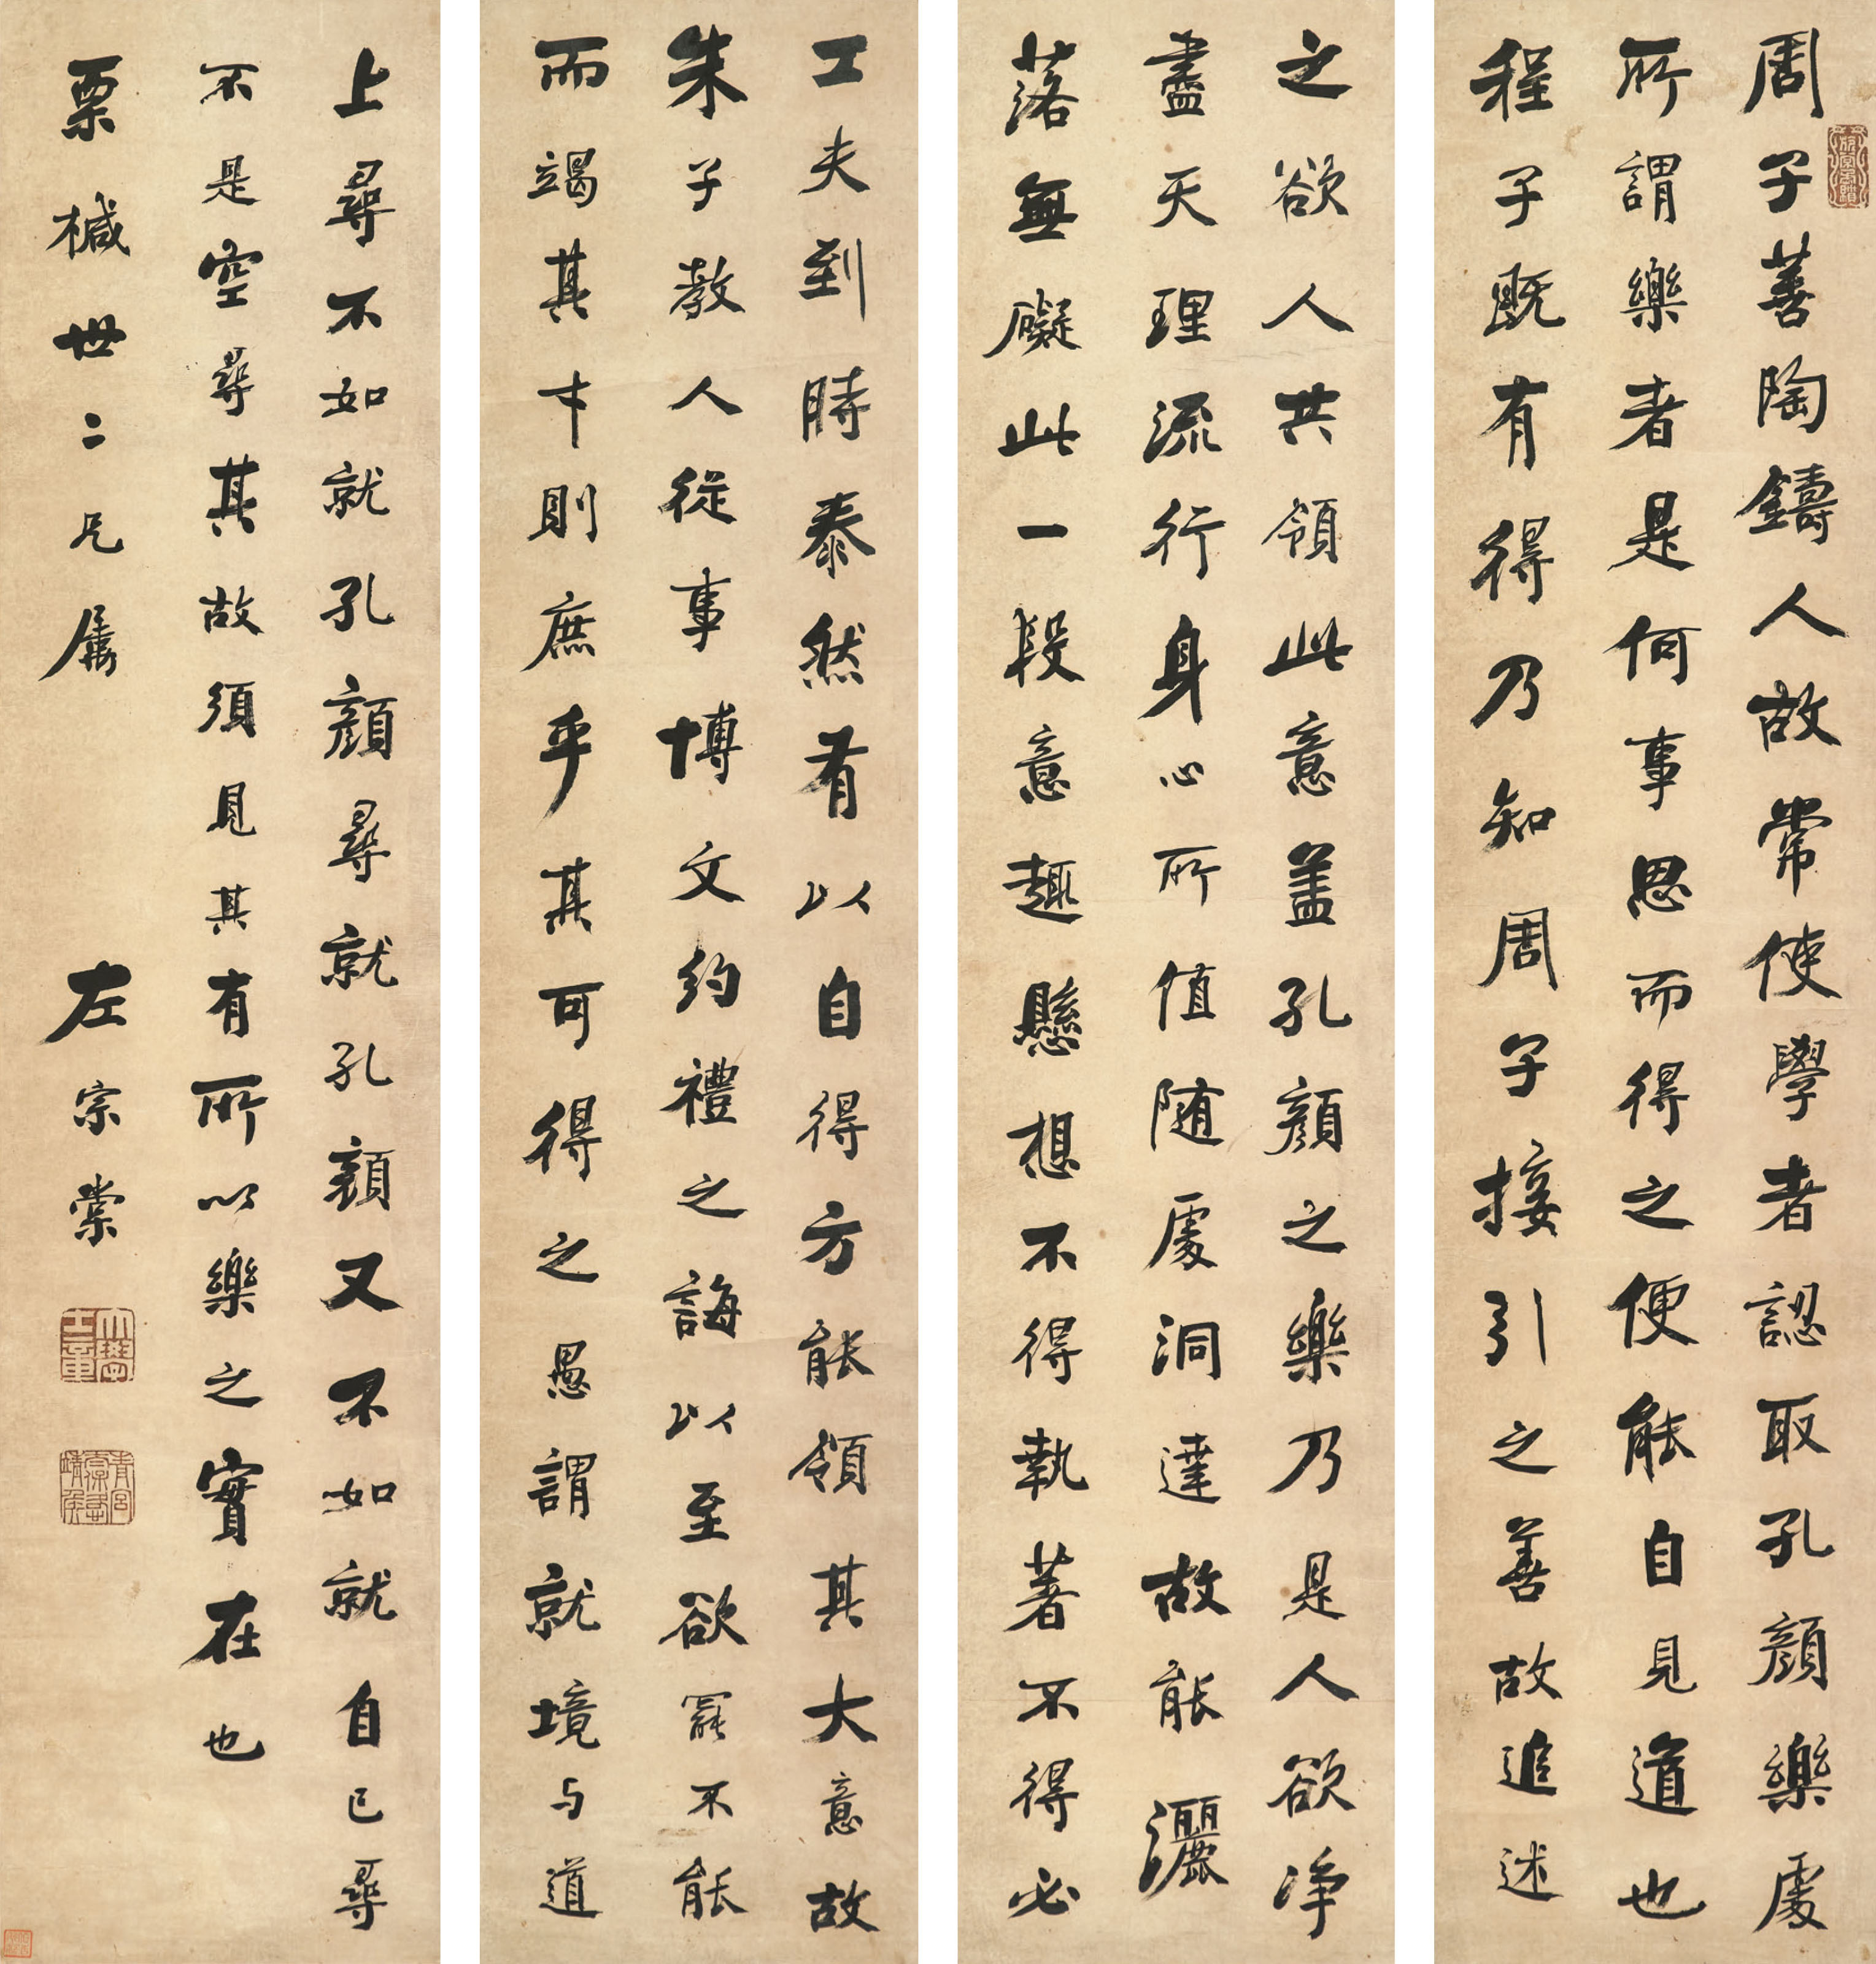 周子善陶鑄人故常使學者認取孔顏樂處
所謂樂者是何事思而得之便能自見道也
程子既有得乃知周子接引之善故追述
之欲人共領此意蓋孔顏之樂乃是人欲净
盡天理流行身心所值随處洞達故能灑
落無礙此一段意趣懸想不得執著不得必
工夫到時泰然有以自得方能領其大意故
朱子教人從事博文約禮之誨以至欲罷不能
而竭其才則庶乎其可得之愚謂就境与道
上尋不如就孔顏尋就孔顏又不如就自己尋
不是空尋其故須見其有所以樂之實在也
栗棫世二兄屬
左宗棠
大學士章
青宮太保恪靖侯